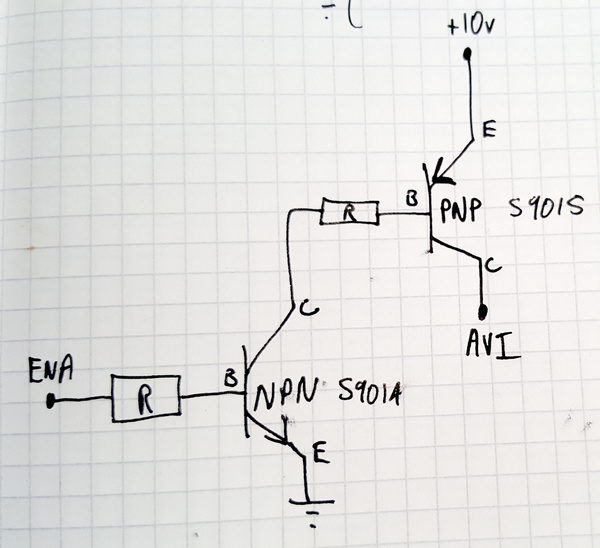 +10v
E
B
R
PNP S9015
C
C
AVI
ENA
B
R
NPN S9014
E